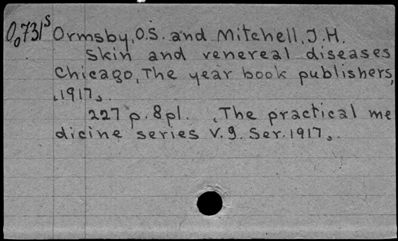 O,0731s Ormsby, O.S. and Mitchell, J.H.
Skin and venereal diseases
Chicago, The year book publishers,
1917.
227 p. 8pl. The practical me
dicine series V.9. Ser. 1917.